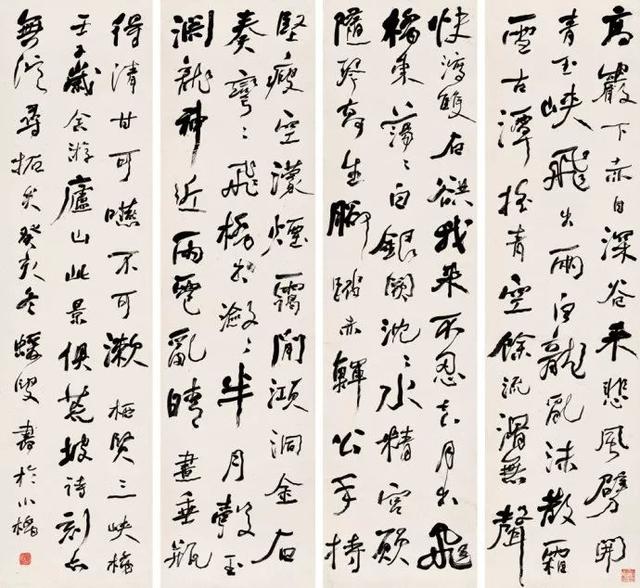 高巖下赤日深谷来悲風劈開
青玉峽飛出兩白龍亂沫散霜
雪古潭搖青空餘流滑無聲
快瀉雙石谼我来不忍去月出飛
橋東蕩々白銀闕沈々水精宮願
隨琴高生腳踏赤鯶公手持
堅瘦空濛煙靄間澒洞金石
奏彎々飛橋出瀲々半月彀玉
淵龍神近雨雹亂晴晝垂瓶
得清甘可嚥不可漱 棲賢三峽橋
壬子歲余游廬山此景俱荒坡詩刻亦
無從尋拓矣癸亥冬蠖叟書於小